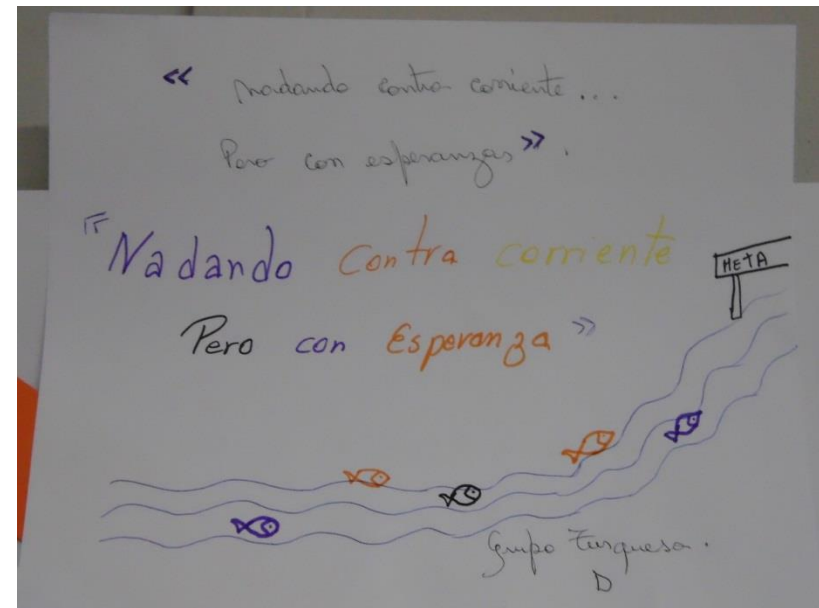 « nadando contra corriente...
Pero con esperanzas ».
"Nadando Contra corriente
Pero con Esperanza »
META
Grupo Turquesa.
D